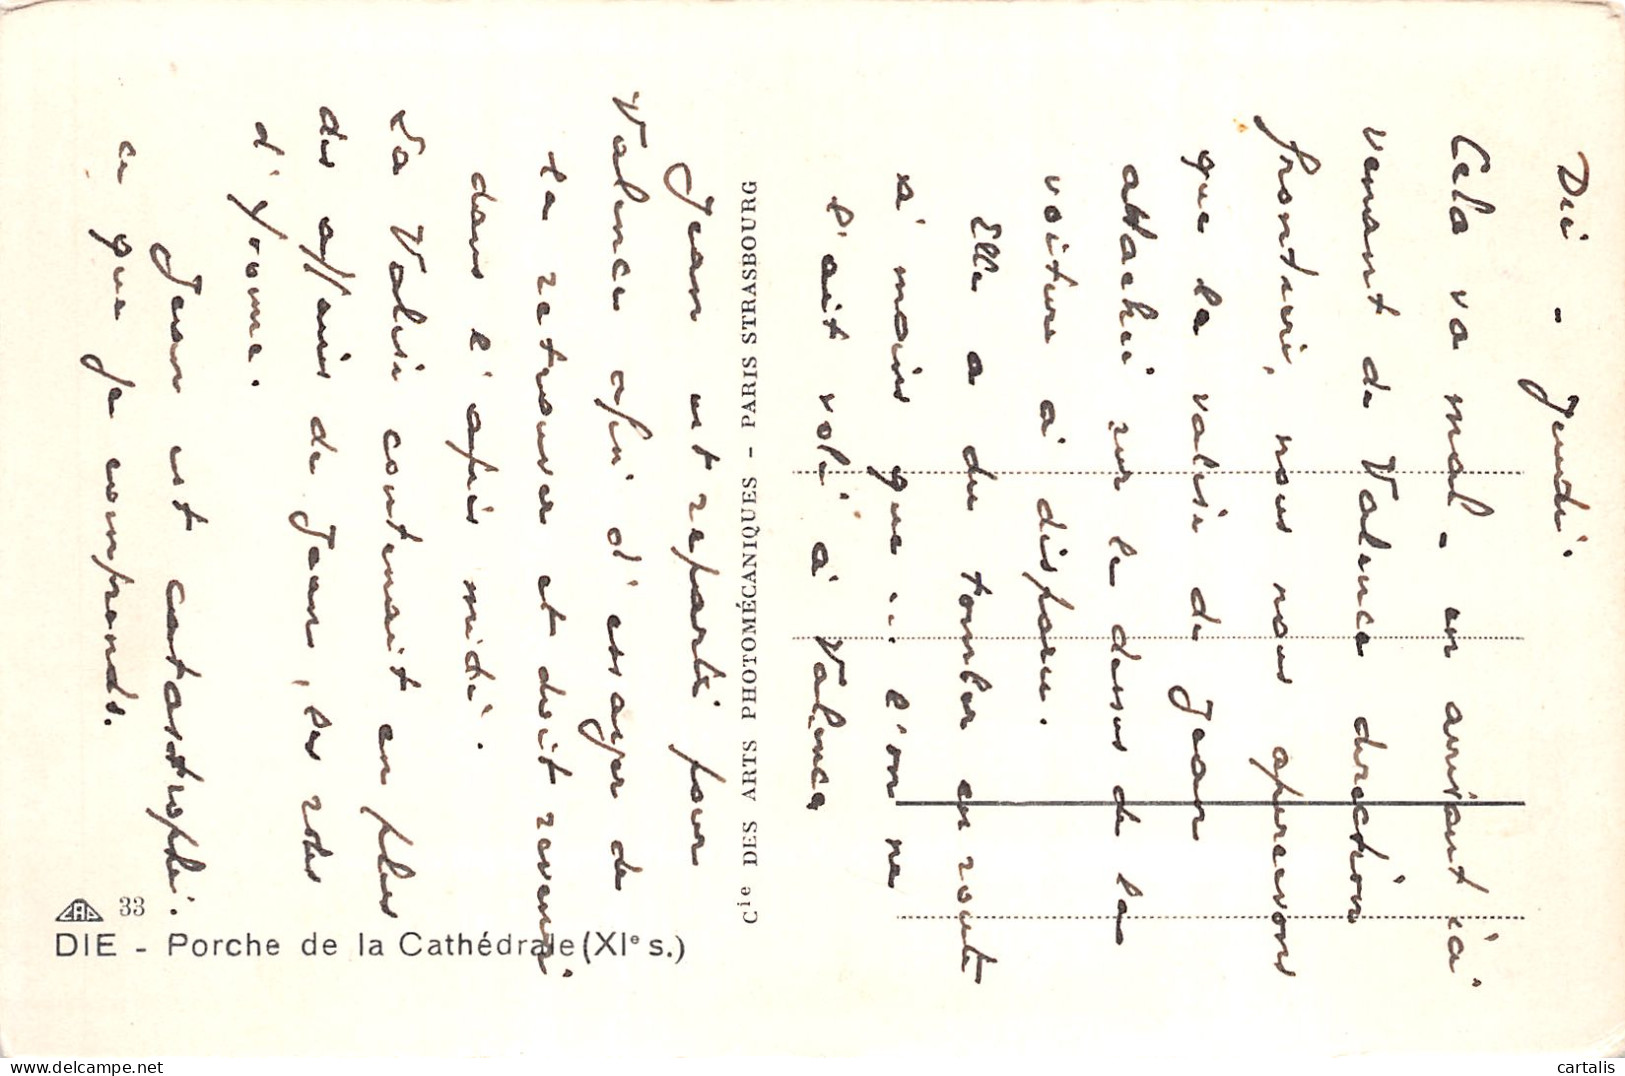 Die - Jeudi
Cela va mal - en arrivant ici
venant de Valence direction
frontière, nous nous apercevons
que la valise de Jean
attachée sur le dessus de la
voiture a disparu.
Elle a du tomber en route
à moins que ... l'on ne
l'ait volé à Valence
Jean est reparti pour
Valence afin d'essayer de
la retrouver et doit revenir
dans l'après midi.
La Valise contenait en plus
des affaires de Jean, les robes
d'Yvonne.
Jean est catastrophé.
ce que je comprends.
Cie DES ARTS PHOTOMÉCANIQUES - PARIS STRASBOURG
CAP 33
DIE - Porche de la Cathédrale (XIe s.)
cartalis